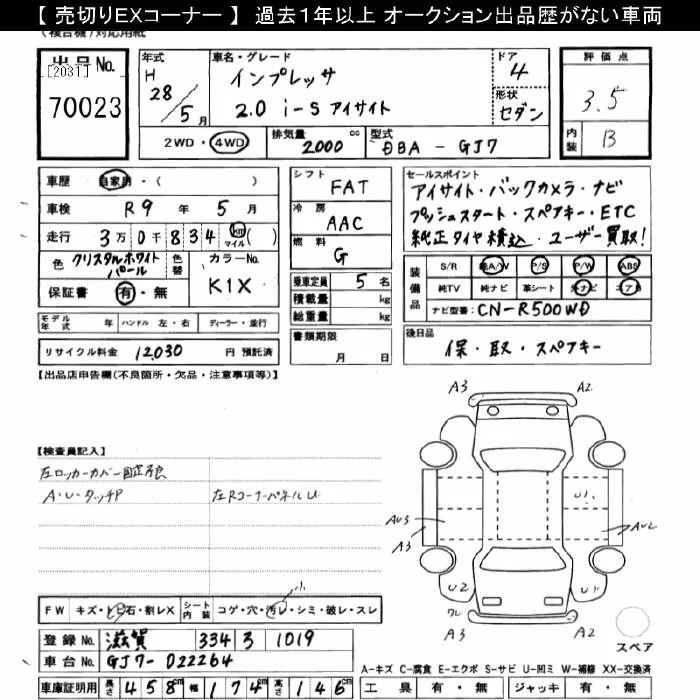 【 売切りEXコーナー 】 過去1年以上 オークション出品歴がない車両
(複合機)対応用紙
出品No.
[2031]
70023
年式
H 28/5月
車名・グレード
インプレッサ
2.0 i-S アイサイト
ドア
4
形状
セダン
評価点
3.5
内装
B
2WD・4WD
排気量 2000 cc
型式 DBA - GJ7
車歴 自家用・( )
車検 R9年 5月
走行 3万0千834 km マイル( )
色 クリスタルホワイトパール
色替
カラーNo.
K1X
保証書 有・無
シフト
FAT
冷房
AAC
燃料
G
乗車定員 5名
積載量 kg
総重量 kg
セールスポイント
アイサイト・バックカメラ・ナビ
プッシュスタート・スペアキー・ETC
純正タイヤ積込・ユーザー買取!
装備品
S/R 純A/W P/S P/W ABS
純TV 純ナビ 革シート 社ナビ エアB
ナビ型番: CN-R500WD
モデル年式 年 ハンドル 左・右 ディーラー・並行
リサイクル料金 12,030 円 預託済
書類期限
月 日
後日品
保・取・スペアキー
【出品店申告欄(不良箇所・欠品・注意事項等)】
【検査員記入】
左ロッカーカバー固定不良
A・U・タッチP
左Rコーナーパネル U
A3 A2
U1
AU3 AU2
A3
U2 U1
ワレ
A3 A2
スペア
FW キズ・トビ石・割レX
シート内装 コゲ・穴・汚レ・シミ・破レ・スレ
小
登録No. 滋賀 334 3 1019
車台No. GJ7-022264
車庫証明用 長さ 458cm 幅 174cm 高さ 146cm
A-キズ C-腐食 E-エクボ S-サビ U-凹ミ W-補修 XX-交換済
工具 有・無 ジャッキ 有・無